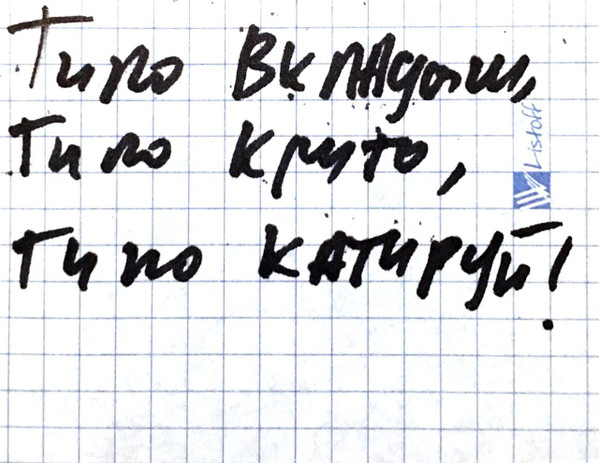 Типо вкладыш,
типо круто,
типо катируй!
Listoff